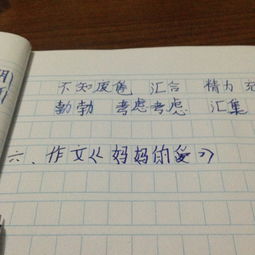 不知疲倦 汇合 精力充
勃勃 考虑考虑 汇集
六、作文《妈妈的爱》